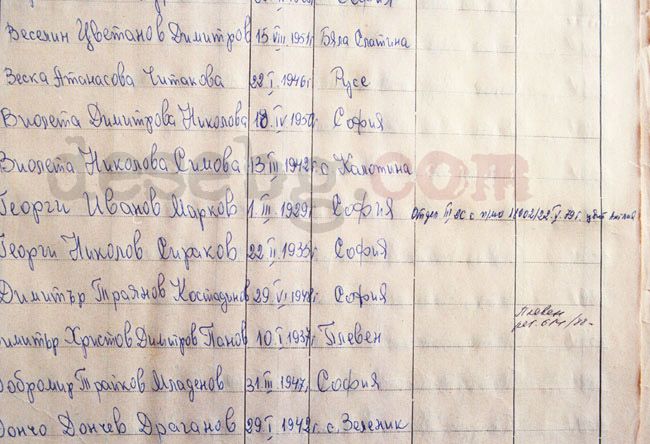 Веселин Цветанов Димитров 15 VIII 1951г. Бяла Слатина
Веска Атанасова Читакова 22 I 1946г. Русе
Виолета Димитрова Николова 18 IV 1950г. София
Виолета Николова Симова 13 III 1942г. с. Калотина
desebg.com
Георги Иванов Марков 1. III 1929г. София Отдел III
Георги Николов Сираков 22 II 1935г. София
Димитър Траянов Костадинов 29 VI 1948г. София
Плевен
имитър Христов Димитров Панов 10 I 1937г. Плевен
обромир Трайков Младенов 31 III 1947г. София
ончо Дончев Драганов 29 I 1942г. с. Зеленик